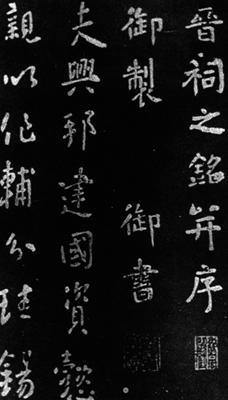 晋祠之銘并序
御製 御書
夫興邦建國資懿
親以作輔分珪錫